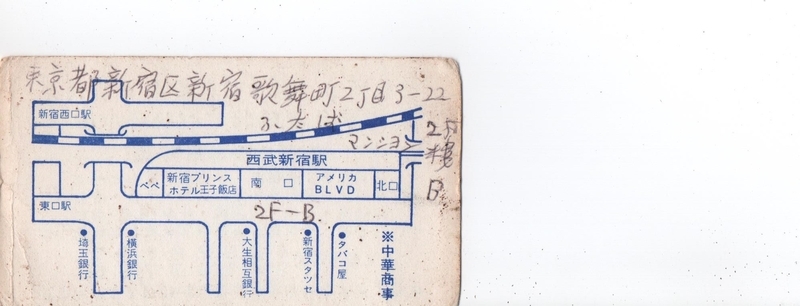 東京都新宿区新宿歌舞町2丁目3-22
ふたば
マンション
2F
B
新宿西口駅
西武新宿駅
ペペ
新宿プリンス
ホテル王子飯店
南口
アメリカ
BLVD
北口
東口駅
2F-B
埼玉銀行
横浜銀行
大生相互銀行
新宿スタッセ
タバコ屋
※中華商事